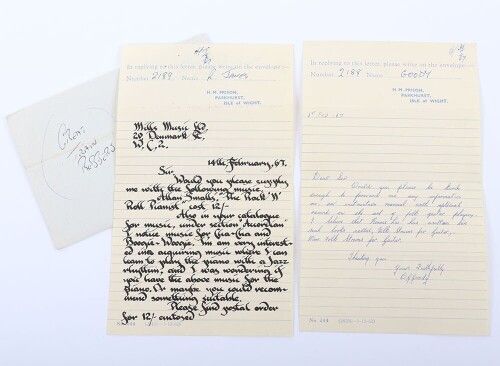 Great
Train
Robbers
4/15
67
In replying to this letter, please write on the envelope:—
Number 2189 Name R James
H M PRISON,
PARKHURST,
ISLE of WIGHT.
Mills Music Ltd,
20 Denmark St,
W.C.2.
14th, February, 67.
Sir,
Would you please supply
me with the following music.
Allan Smalls, "The Rock 'N'
Roll Pianist" cost 12/-
Also in your catalogue
for music, under section "Acordian"
I notice music for Cha-Cha and
Boogie-Woogie. I'm am very interest-
ed into acquiring music where I can
learn to play the piano with a Jazz
rhythm, and I was wondering if
you have the above music for the
piano. Or maybe you could recom-
mend something suitable.
Please find postal order
for 12/- enclosed
No. 244
In replying to this letter, please write on the envelope:—
Number 2188 Name Goody
H M PRISON,
PARKHURST,
ISLE of WIGHT.
1st Feb. 67
Dear Sir
Would you please be kind
enough to forward me any information
on an instruction manual with
record or do set of folk guitar playing.
I believe that has written one
such book called, Folk Blues for Guitar,
Folk Blues for Guitar.
Thanking you
Yours Faithfully
No. 244